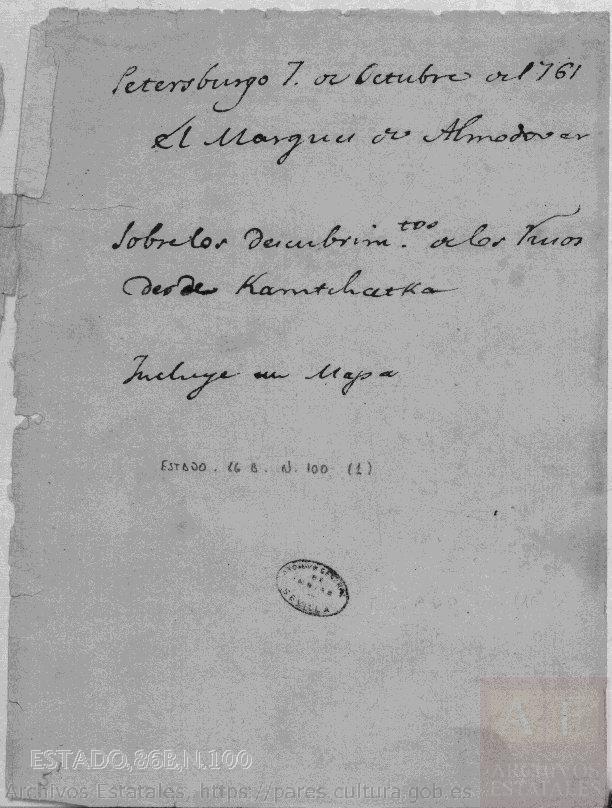 Petersburgo 7. de Octubre de 1761
El Marques de Almodovar
Sobre los descubrim.tos de los Rusos
desde Kamtchatka
Incluye un Mapa
ESTADO. 86 B. N. 100 (1)
ARCHIVO GENERAL
DE
INDIAS
SEVILLA
ESTADO,86B,N.100
AE
ARCHIVOS
ESTATALES
Archivos Estatales, https://pares.cultura.gob.es